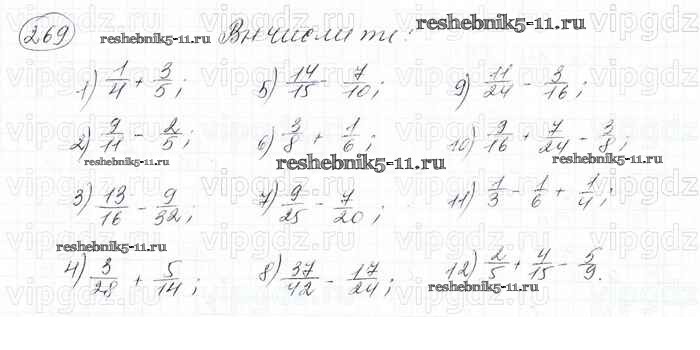 269 reshebnik5-11.ru Вычислите: reshebnik5-11.ru
1) 1/4 + 3/5; 5) 14/15 - 7/10; 9) 11/24 - 3/16;
2) 9/11 - 2/5; 6) 3/8 + 1/6; 10) 9/16 + 7/24 - 3/8;
reshebnik5-11.ru reshebnik5-11.ru reshebnik5-11.ru
3) 13/16 - 9/32; 7) 9/25 - 7/20; 11) 1/3 - 1/6 + 1/4;
reshebnik5-11.ru
4) 3/28 + 5/14; 8) 37/42 - 17/24; 12) 2/5 + 4/15 - 5/9.
reshebnik5-11.ru
vipgdz